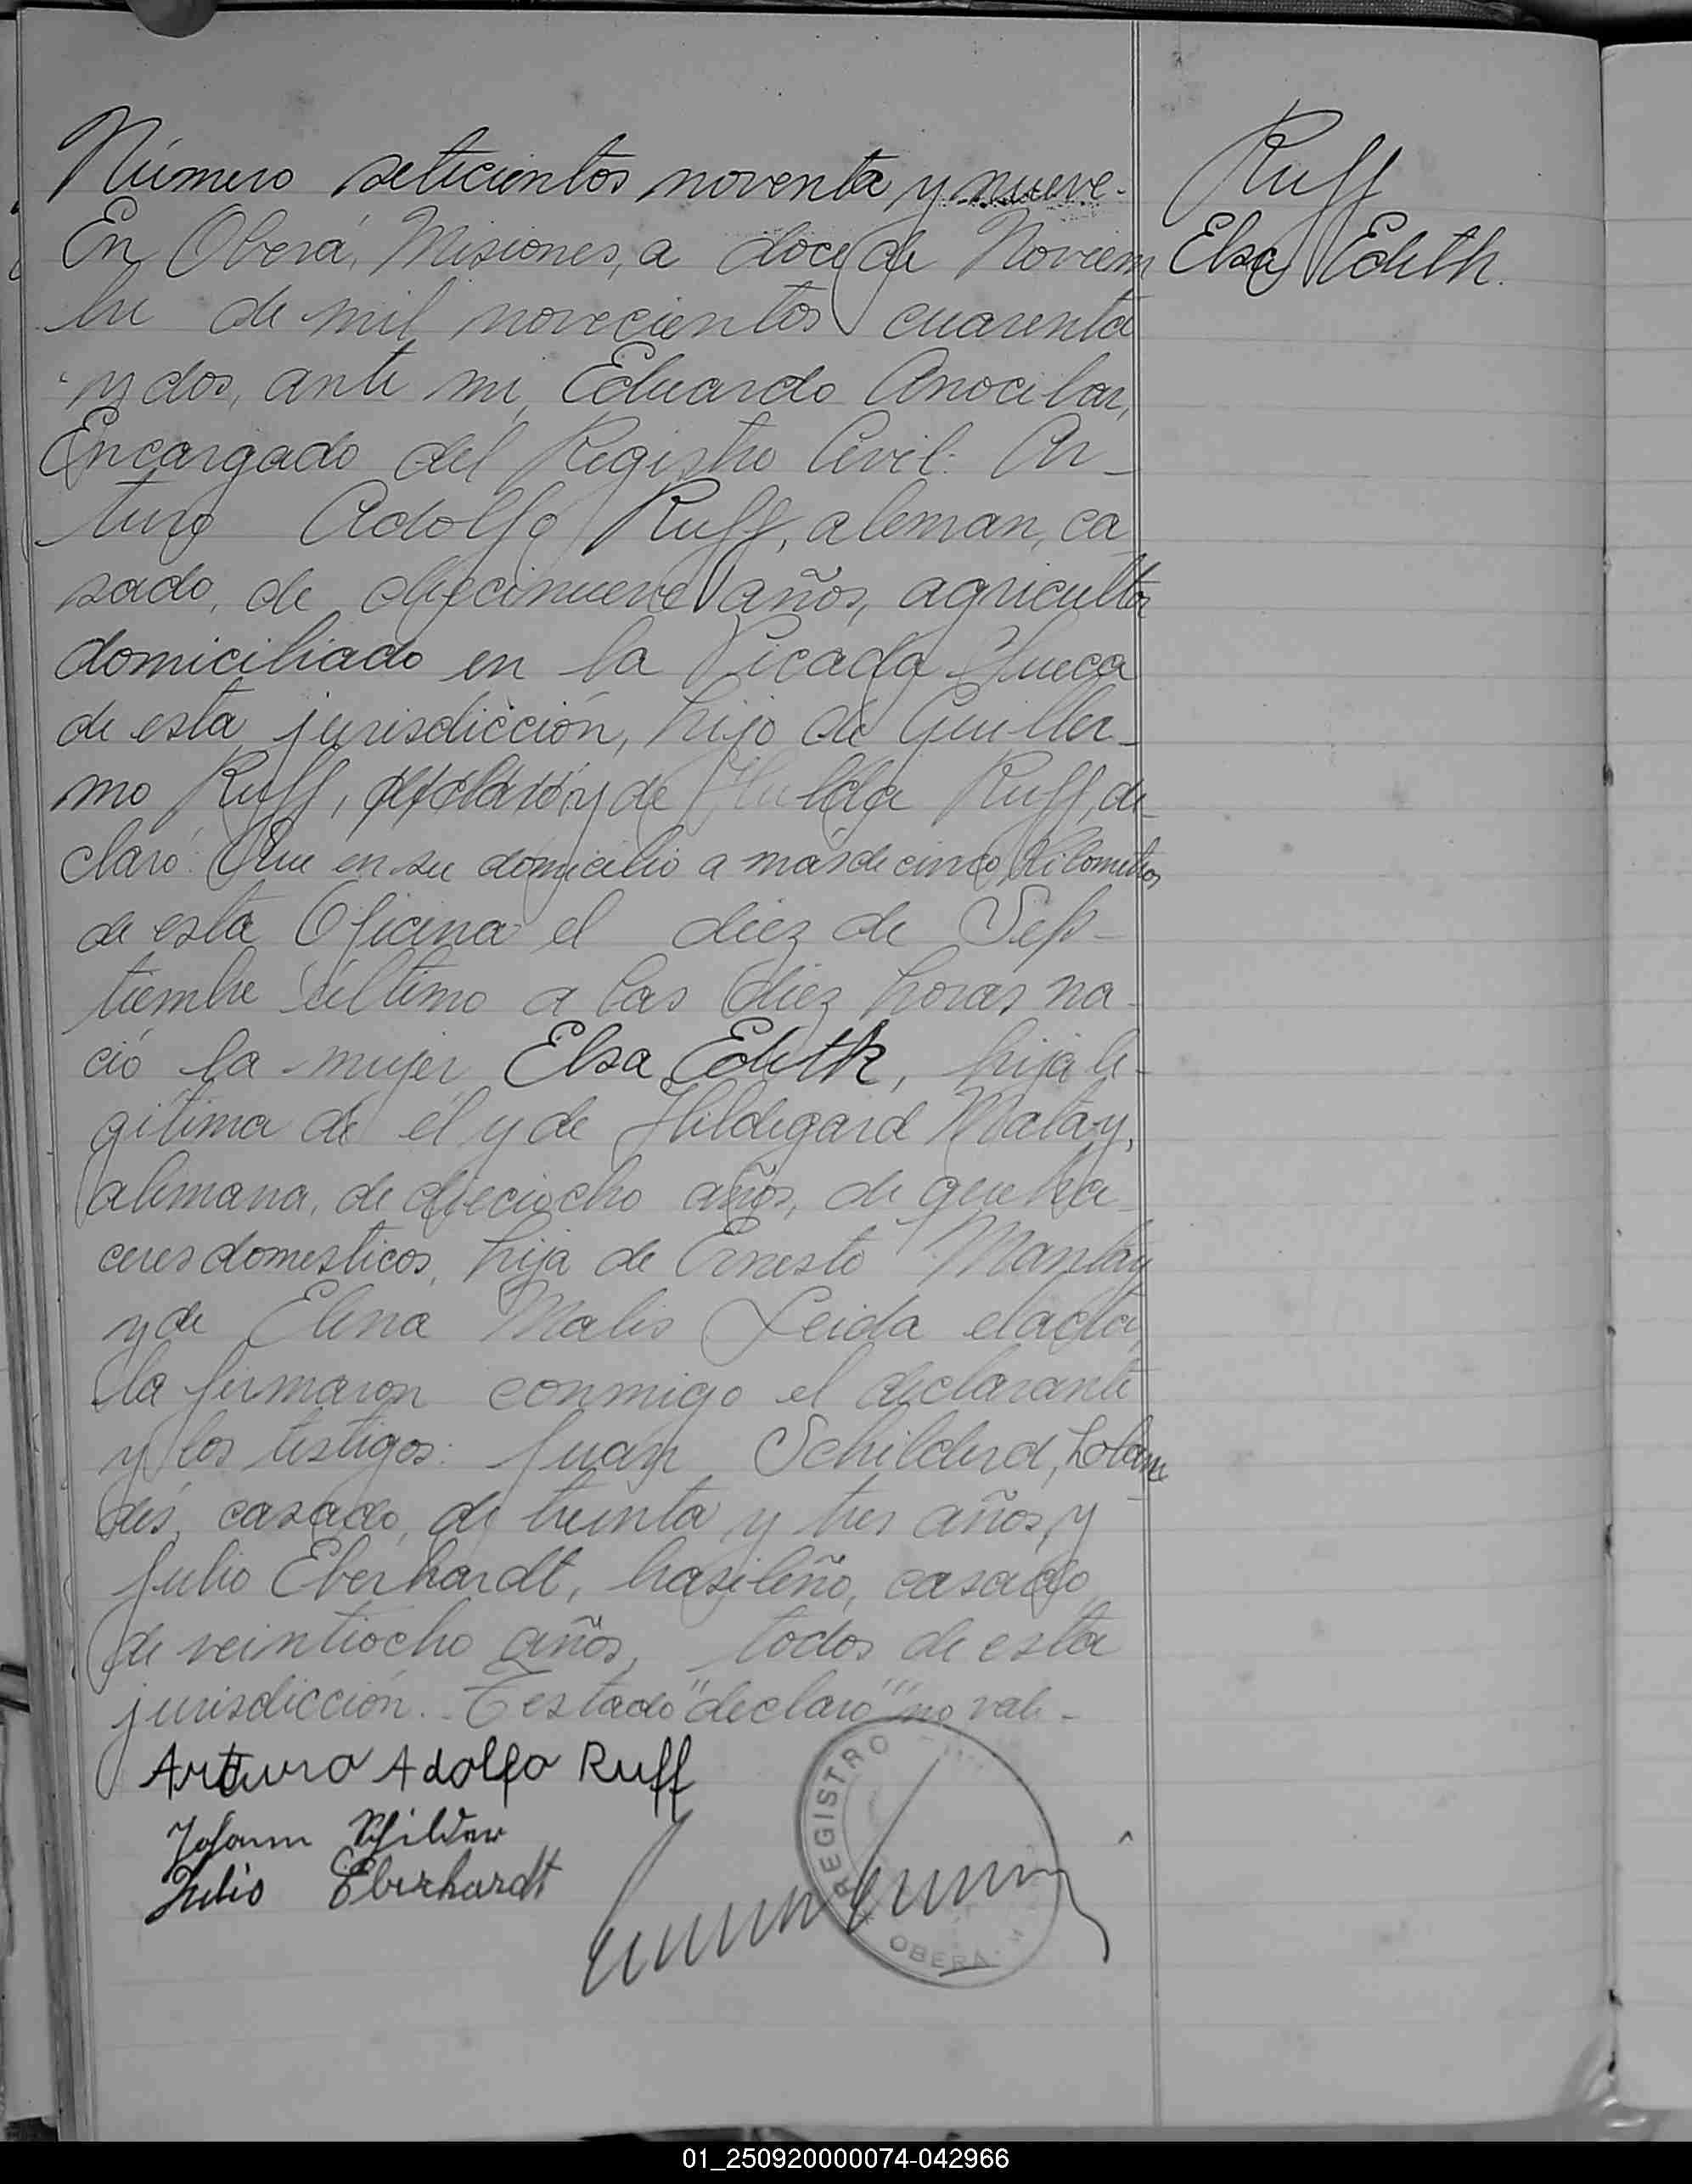 Número seticientos noventa y nueve.-
Ruff
Elsa Edith.
En Oberá, Misiones, a doce de Noviem
bre de mil novecientos cuarenta
y dos, ante mi, Eduardo Anocibar,
Encargado del Registro Civil: Ar-
turo Adolfo Ruff, aleman, ca
sado, de diecinueve años, agricultor
domiciliado en la Picada Sueca
de esta jurisdicción, hijo de Guiller-
mo Ruff, declaró y de Hulda Ruff, de-
claró: Que en su domicilio a más de cinco kilometros
de esta Oficina el diez de Sep-
tiembre último a las diez horas na-
ció la mujer Elsa Edith, hija le-
gitima de él y de Hildegard Matay,
alemana, de dieciocho años, de que ha-
ceres domesticos, hija de Ernesto Mantay
y de Elena Malis Leida el acta,
la firmaron conmigo el declarante
y los testigos: Juan Schilderd, holan
dés, casado, de treinta y tres años, y
Julio Eberhardt, brasileño, casado,
de veintiocho años, todos de esta
jurisdicción.- Testado "declaró" no vale.-
Arturo Adolfo Ruff
Johann Schilder
Julio Eberhardt
REGISTRO
OBERA
01_250920000074-042966